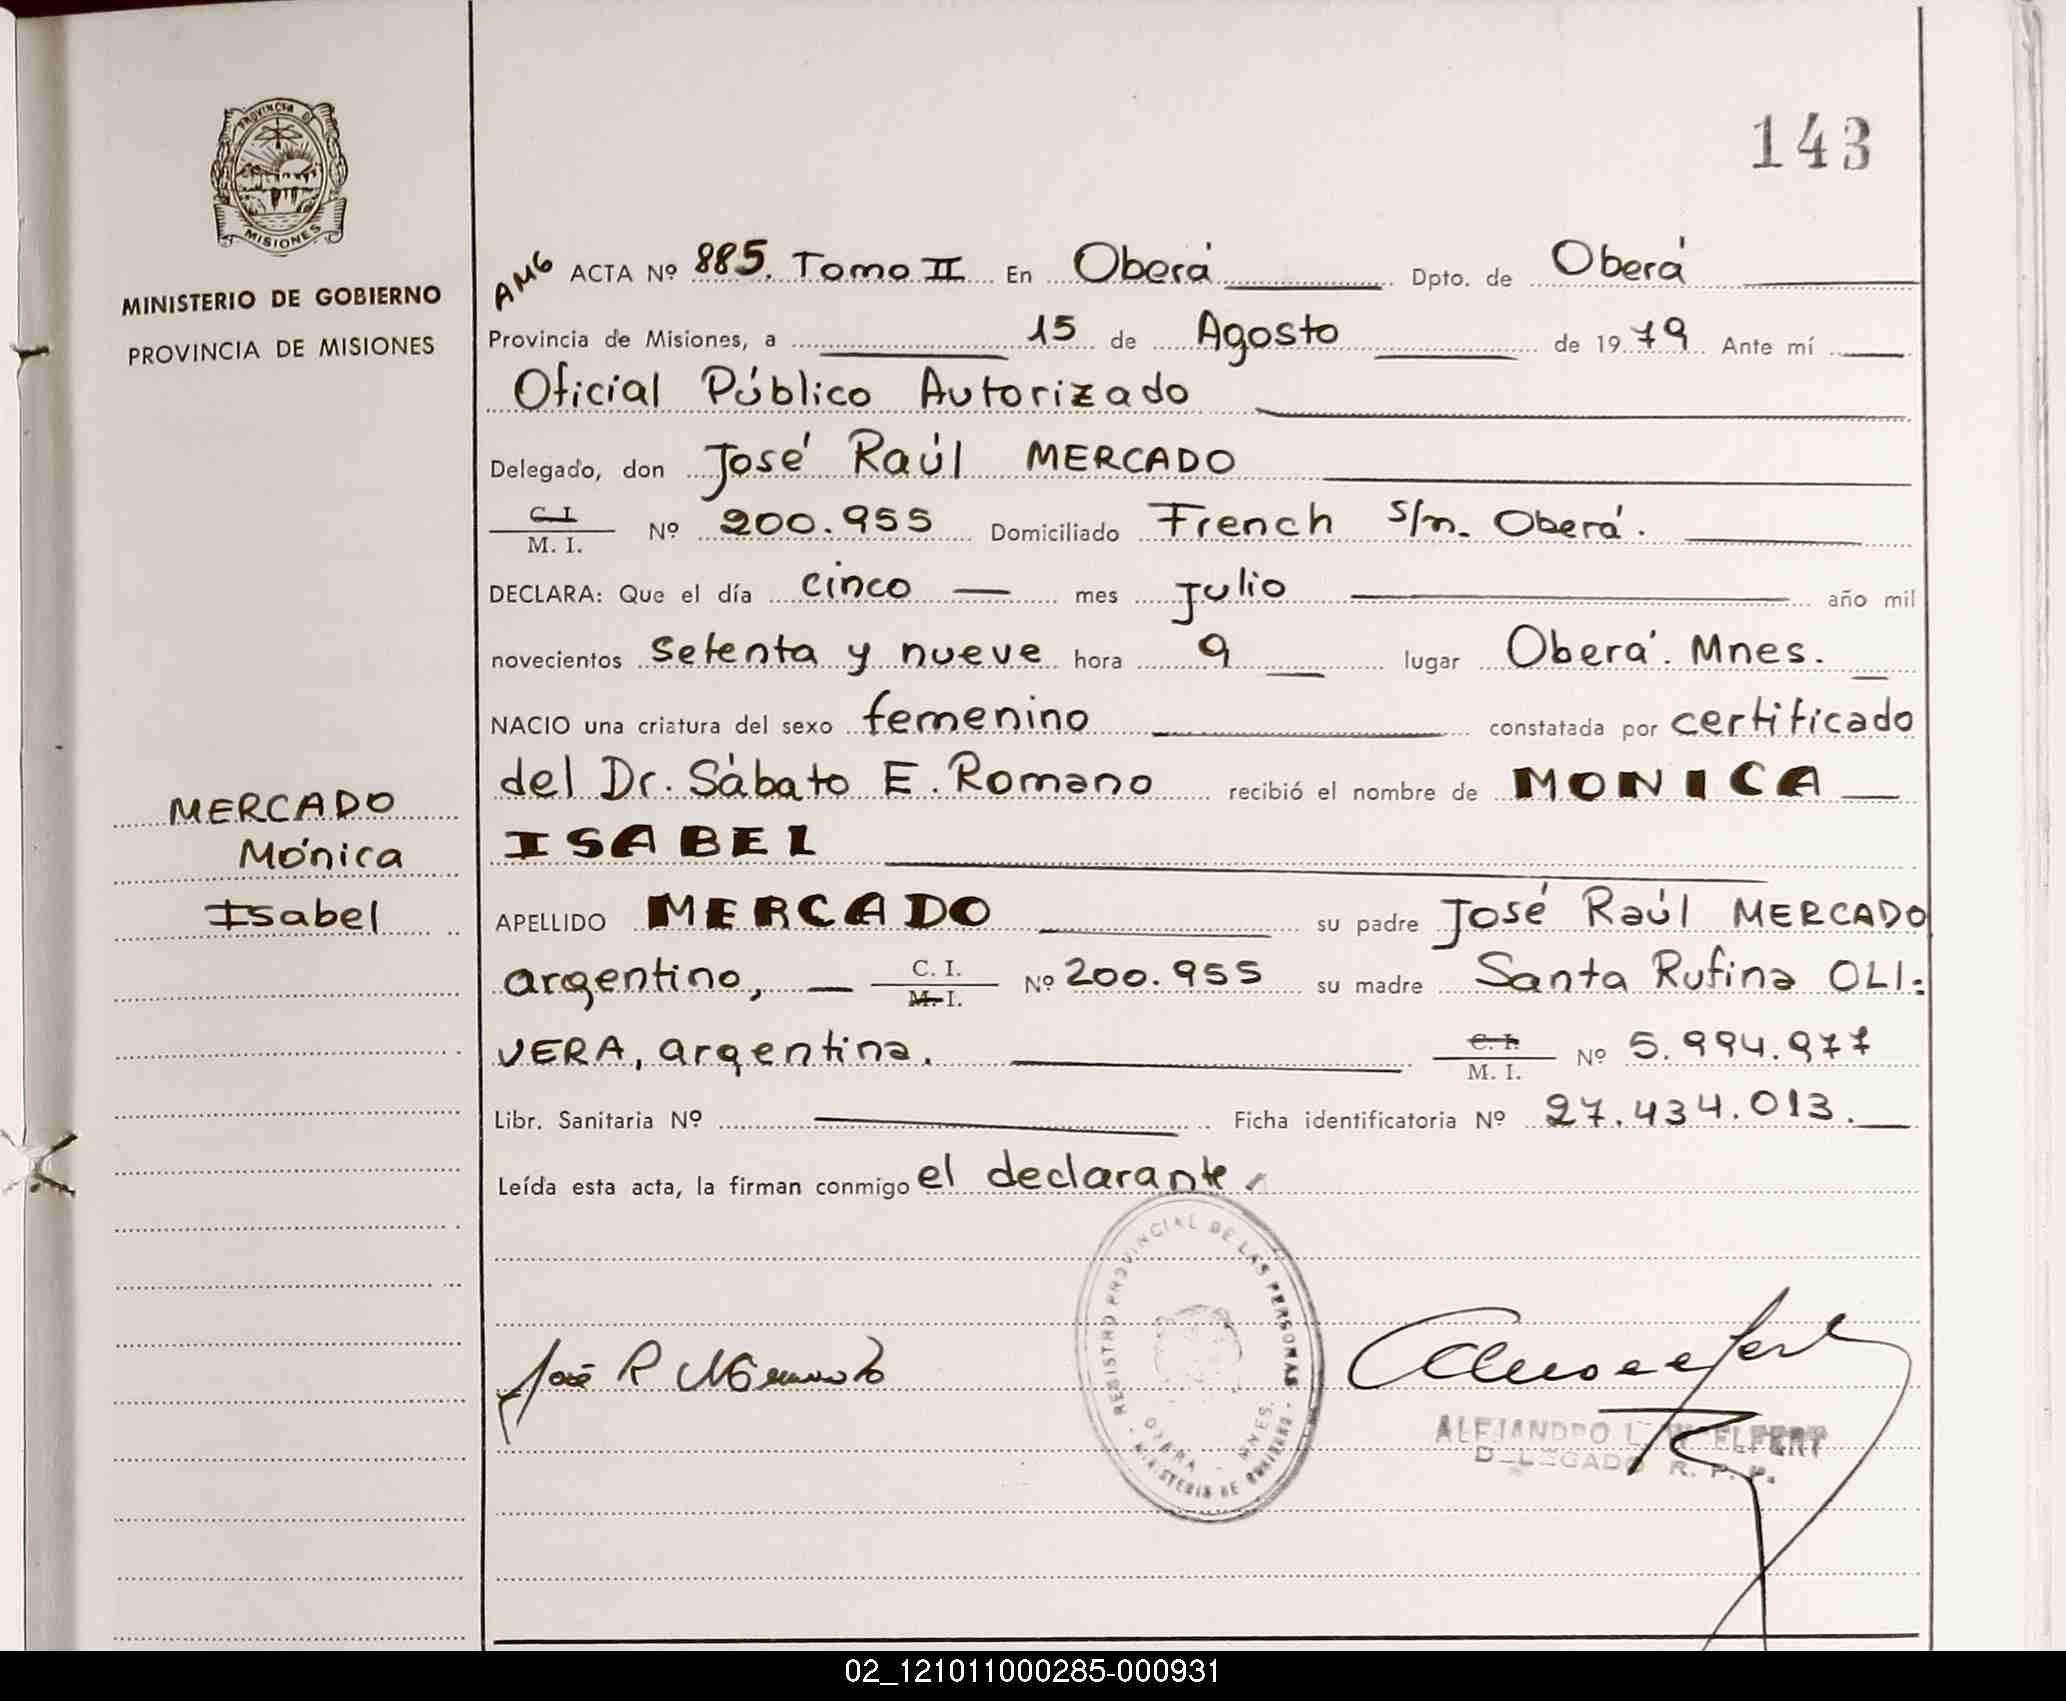 143
PROVINCIA DE
MISIONES
MINISTERIO DE GOBIERNO
PROVINCIA DE MISIONES
MERCADO
Mónica
Isabel
AMG ACTA Nº 885. Tomo II En Oberá Dpto. de Oberá
Provincia de Misiones, a 15 de Agosto de 1979 Ante mí
Oficial Público Autorizado
Delegado, don José Raúl MERCADO
C. I. M. I. Nº 200.955 Domiciliado French s/n. Oberá.
DECLARA: Que el día cinco mes Julio año mil
novecientos setenta y nueve hora 9 lugar Oberá. Mnes.
NACIO una criatura del sexo femenino constatada por certificado
del Dr. Sábato E. Romano recibió el nombre de MONICA
ISABEL
APELLIDO MERCADO su padre José Raúl MERCADO
argentino, C. I. M. I. Nº 200.955 su madre Santa Rufina OLI=
VERA, argentina. C. I. M. I. Nº 5.994.977
Libr. Sanitaria Nº Ficha identificatoria Nº 27.434.013.
Leída esta acta, la firman conmigo el declarante.
REGISTRO PROVINCIAL DE LAS PERSONAS
OBERA - MNES.
MINISTERIO DE GOBIERNO
José R
ALEJANDRO L
DELEGADO R. P. P.
02_121011000285-000931